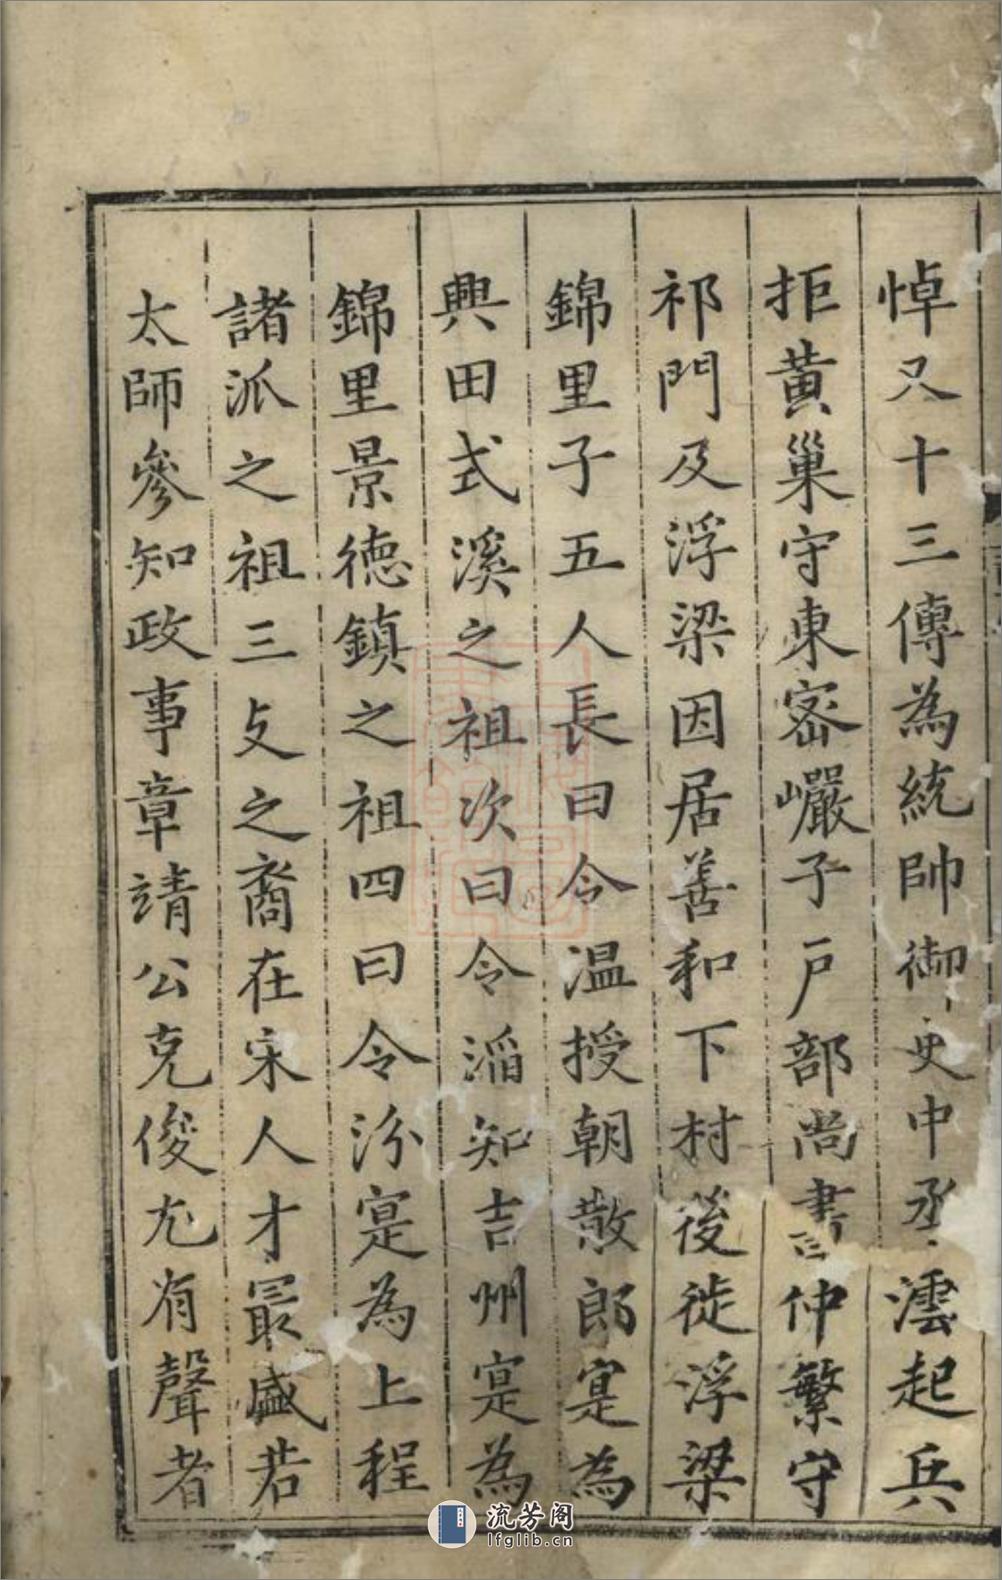 悼又十三傳為統帥御史中丞澐起兵
拒黃巢守東密巖子戶部尚書仲繁守
祁門及浮梁因居善和下村後徙浮梁
錦里子五人長曰令温授朝散郎寔為
興田式溪之祖次曰令滔知吉州寔為
錦里景德鎮之祖四曰令汾寔為上程
諸派之祖三攴之裔在宋人才最盛若
太師參知政事章靖公克俊尤有聲者
流芳阁
lfglib.cn